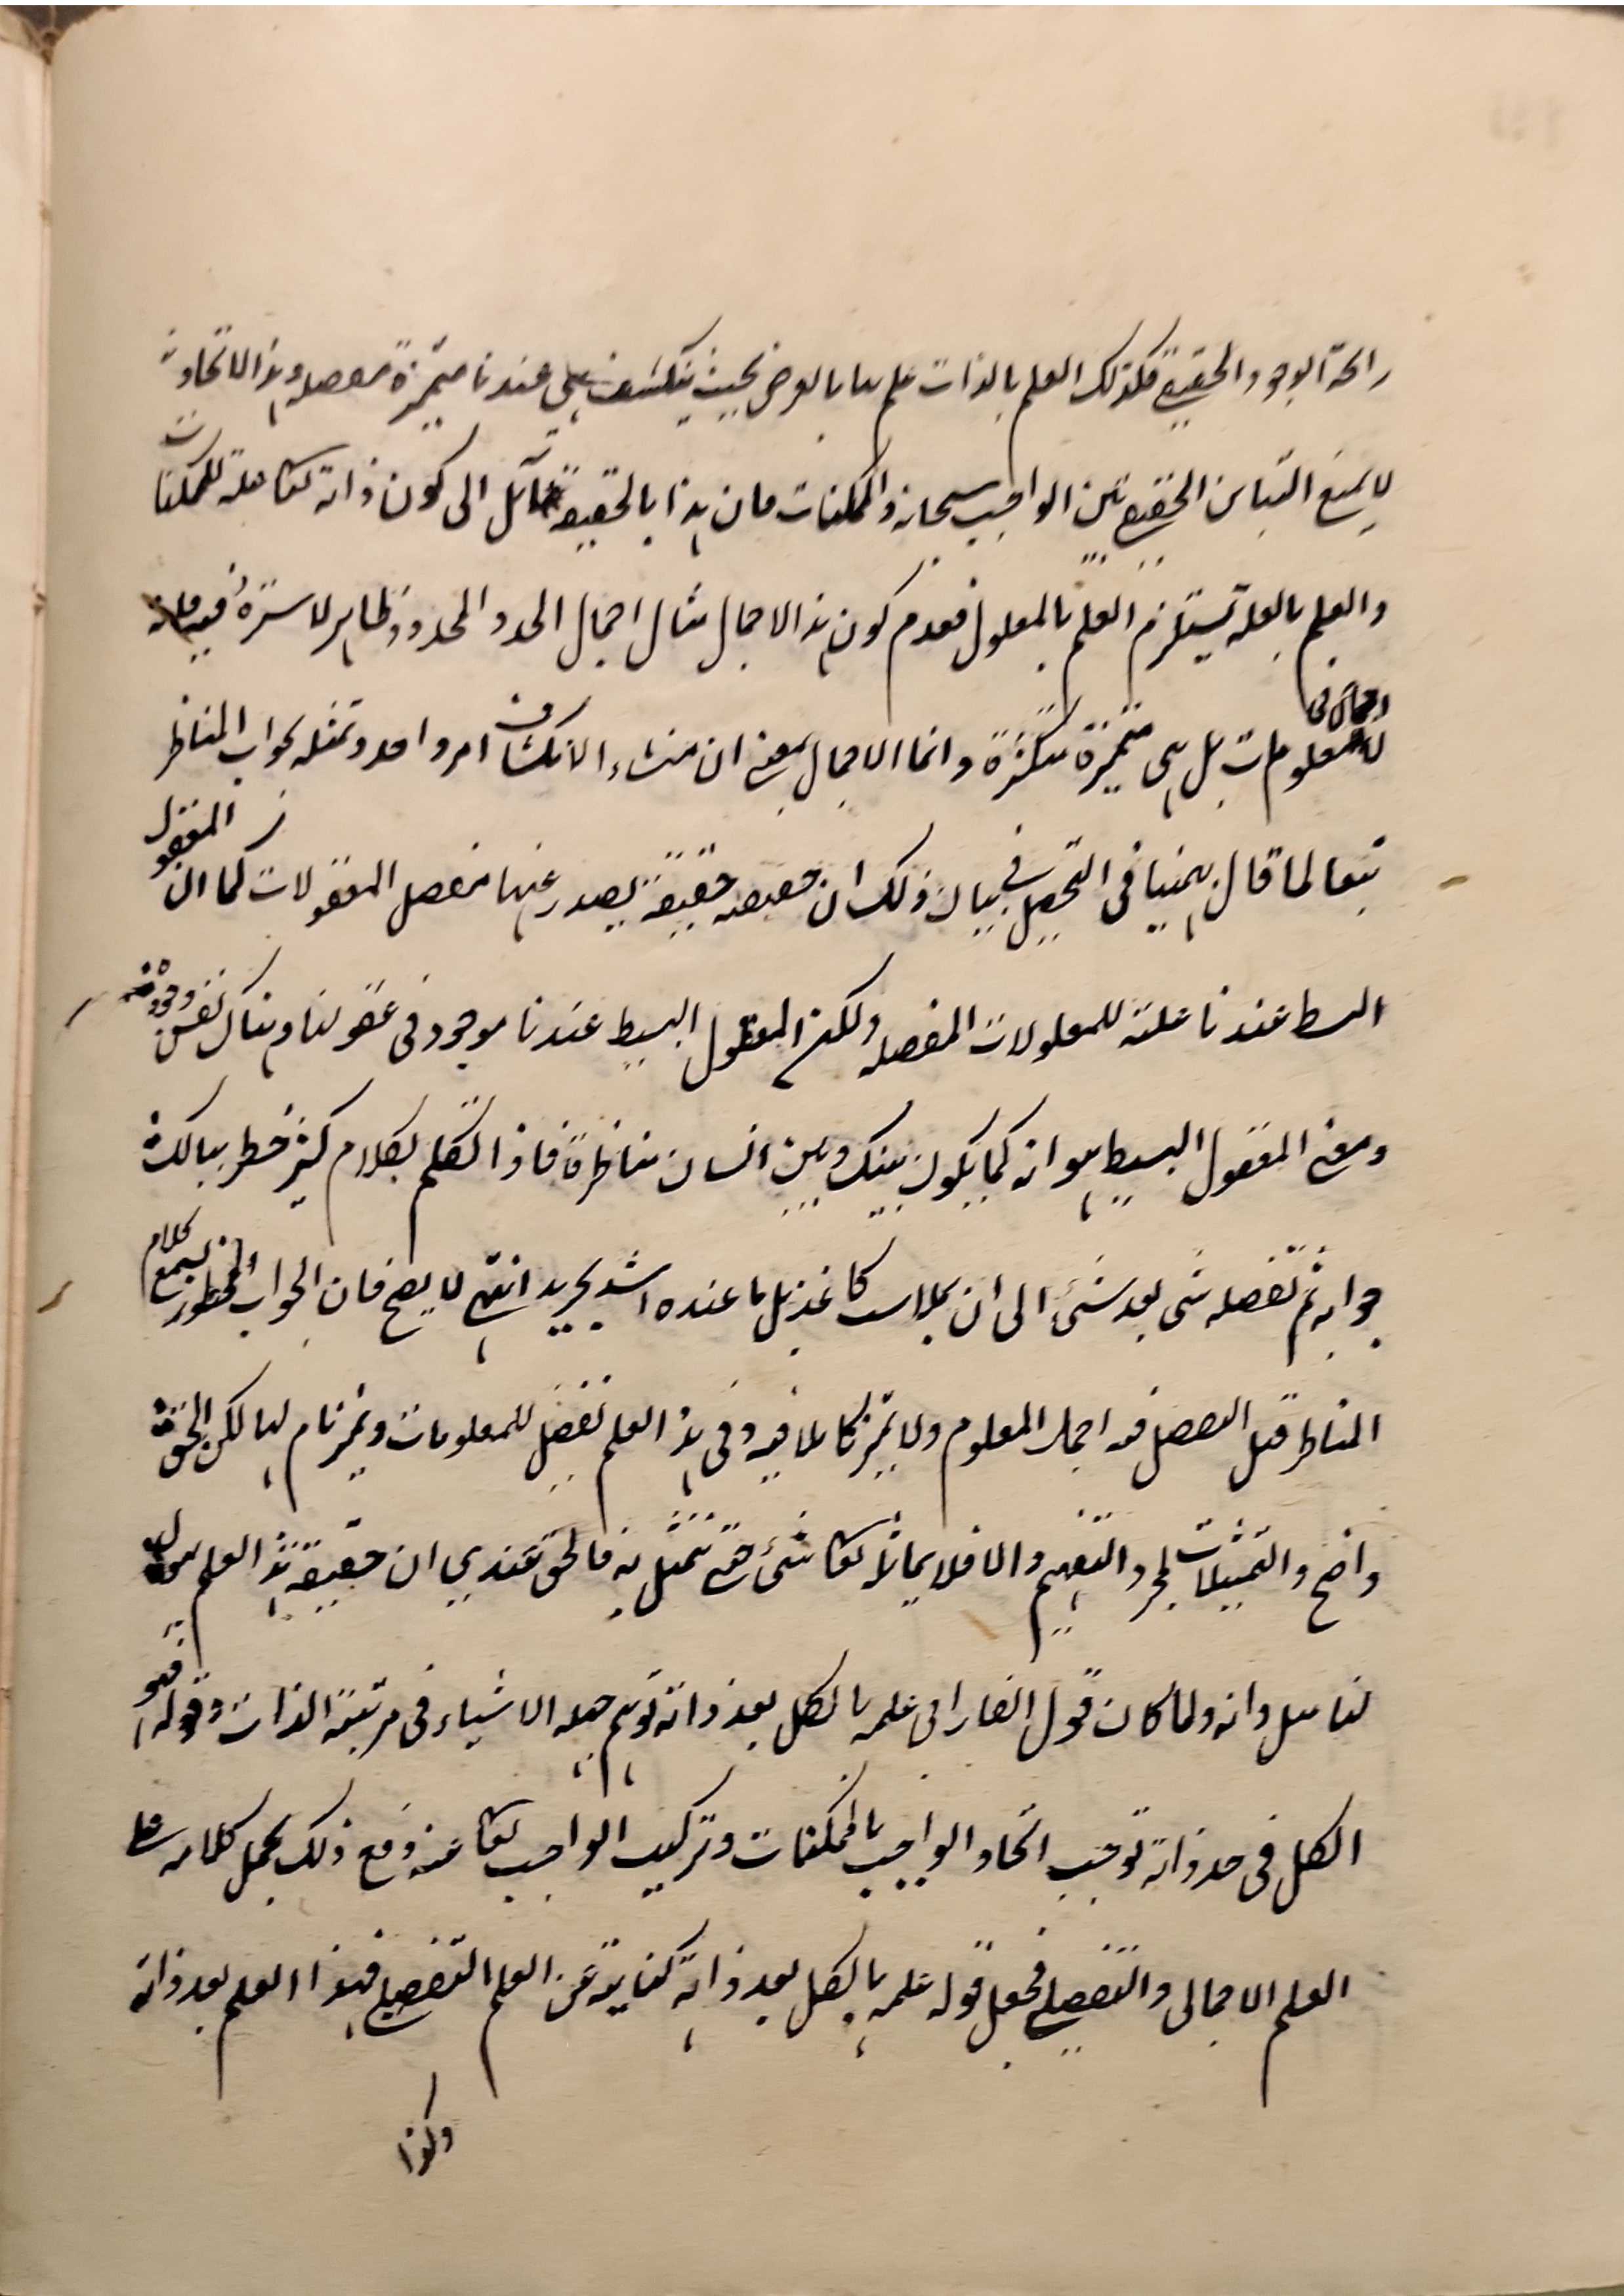 رائحة الوجود الحقيقي فكذلك العلم بالذات علم بها بالعرض بحيث ينكشف هي عندنا متميزة مفصلة وهذا الاتحاد
لا يمنع التباين الحقيقي بين الواجب سبحانه والممكنات فان هذا بالحقيقة مآئل الى كون ذاته تعا علة للممكنات
والعلم بالعلة يستلزم العلم بالمعلول فعدم كون هذا الاجمال مثال اجمال الحد والمحدود ظاهر لا سترة فيه فانه
لا اجمال في المعلومات بل هي متميزة متكثرة وانما الاجمال بمعنى ان منشاء الانكشاف امر واحد وتمثله بجواب المناظر
تبعا لما قال بهمنيا في التحصيل في بيان ذلك ان حقيقته حقيقة يصدر عنها مفصل المعقولات كما ان المعقول
البسيط عندنا علة للمعلولات المفصلة ولكن المعقول البسيط عندنا موجود في عقولنا وهناك نفس وجوده
ومعنى المعقول البسيط هو انه كما يكون بينك وبين انسان مناظرة فاذا تكلم بكلام كثير خطر ببالك
جوابه ثم تفصله شى بعد شئ الى ان يملاء كاغذ بل ما عنده اشد تجريد انتهى لا يصح فان الجواب المخطور لسمع كلام
المناظر قبل التفصيل فيه اجمال المعلوم ولا تميز كاملا فيه وفي هذا العلم تفصيل للمعلومات وتميز تام لها لكن الحق
واضح والتمثيلات لمجرد التفهيم والا فلا يماثله تعا شئ حتى تتمثل به فالحق عندي ان حقيقة هذا العلم مجهول
لنا وانه ولما كان قول الفارابي علمه بالكل بعد ذاته توهم جهله الاشياء في مرتبة الذات وقوله فهو
الكل في حد ذاته توجب اتحاد الواجب بالممكنات وتركيب الواجب تعا عنه ومع ذلك يحمل كلامه على
العلم الاجمالى والتفصيلي فجعل قوله علمه بالكل بعد ذاته كناية عن العلم التفصيلي فهذا العلم بعد ذاته
وكذا